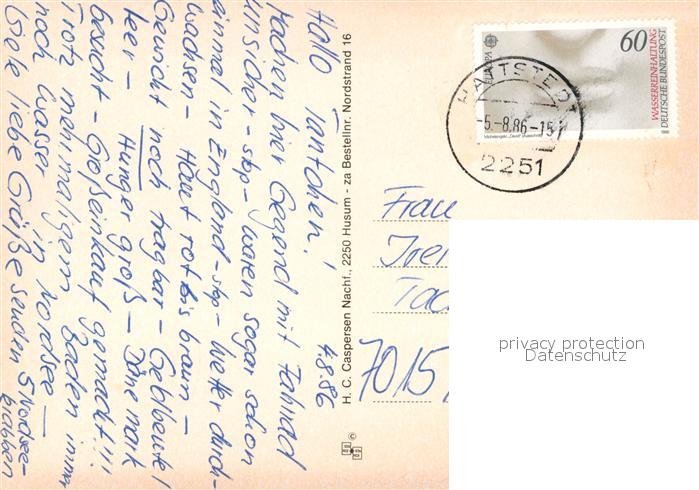 Hallo Tantchen! 4.8.86
Machen hier Gegend mit Fahrrad
unsicher - stop - waren sogar schon
einmal in England - stop - Wetter durch-
wachsen - Haut rot bis braun -
Gewicht noch tragbar - Geldbeutel
leer - Hunger groß - Dänemark
besucht - Großeinkauf gemacht!!!
Trotz mehrmaligem Baden immer
noch Wasser in Nordsee -
Viele liebe Grüße senden 5 Nordsee-
krabben
H. C. Caspersen Nachf., 2250 Husum - za Bestellnr. Nordstrand 16
EUROPA
60
WASSERREINHALTUNG
DEUTSCHE BUNDESPOST
HATTSTEDT
-5.-8.86-15
2251
Frau
70151
privacy protection
Datenschutz